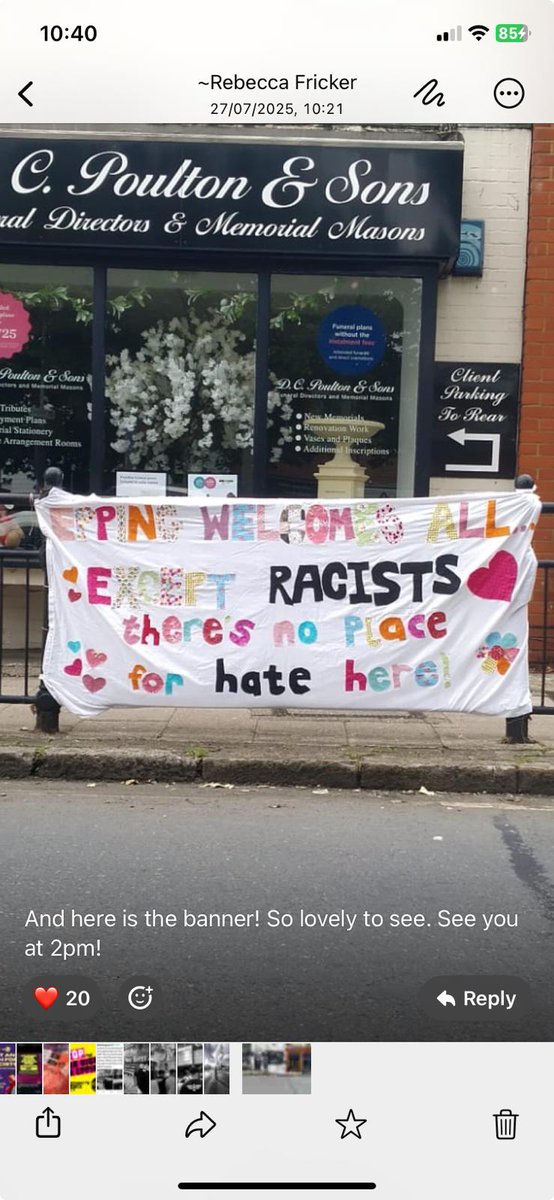 10:40
85
~Rebecca Fricker
27/07/2025, 10:21
C. Poulton & Sons
ral Directors & Memorial Masons
£25
Poulton & Sons
ectors and Memorial Masons
Tributes
yment Plans
ial Stationery
Arrangement Rooms
Funeral plans
without the
instalment fees
D.C. Poulton & Sons
neral Directors and Memorial Masons
New Memorials
Renovation Work
Vases and Plaques
Additional Inscriptions
Client
Parking
To Rear
EPPING WELCOMES ALL...
EXCEPT RACISTS
there's no place
for hate here!
And here is the banner! So lovely to see. See you
at 2pm!
❤️ 20
Reply